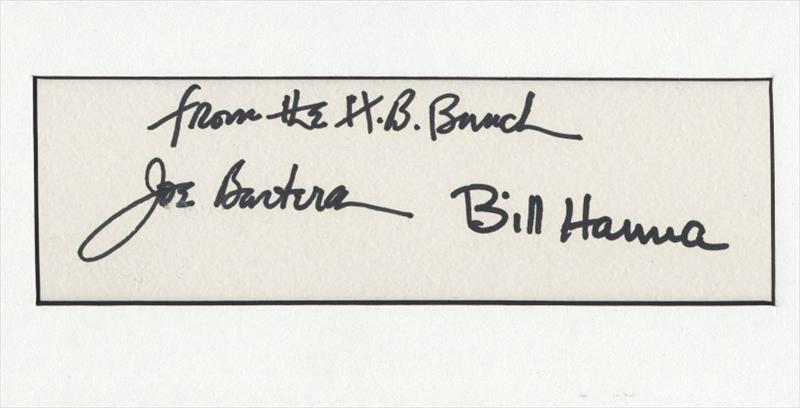 from the H.B. Bunch
Joe Barbera Bill Hanna